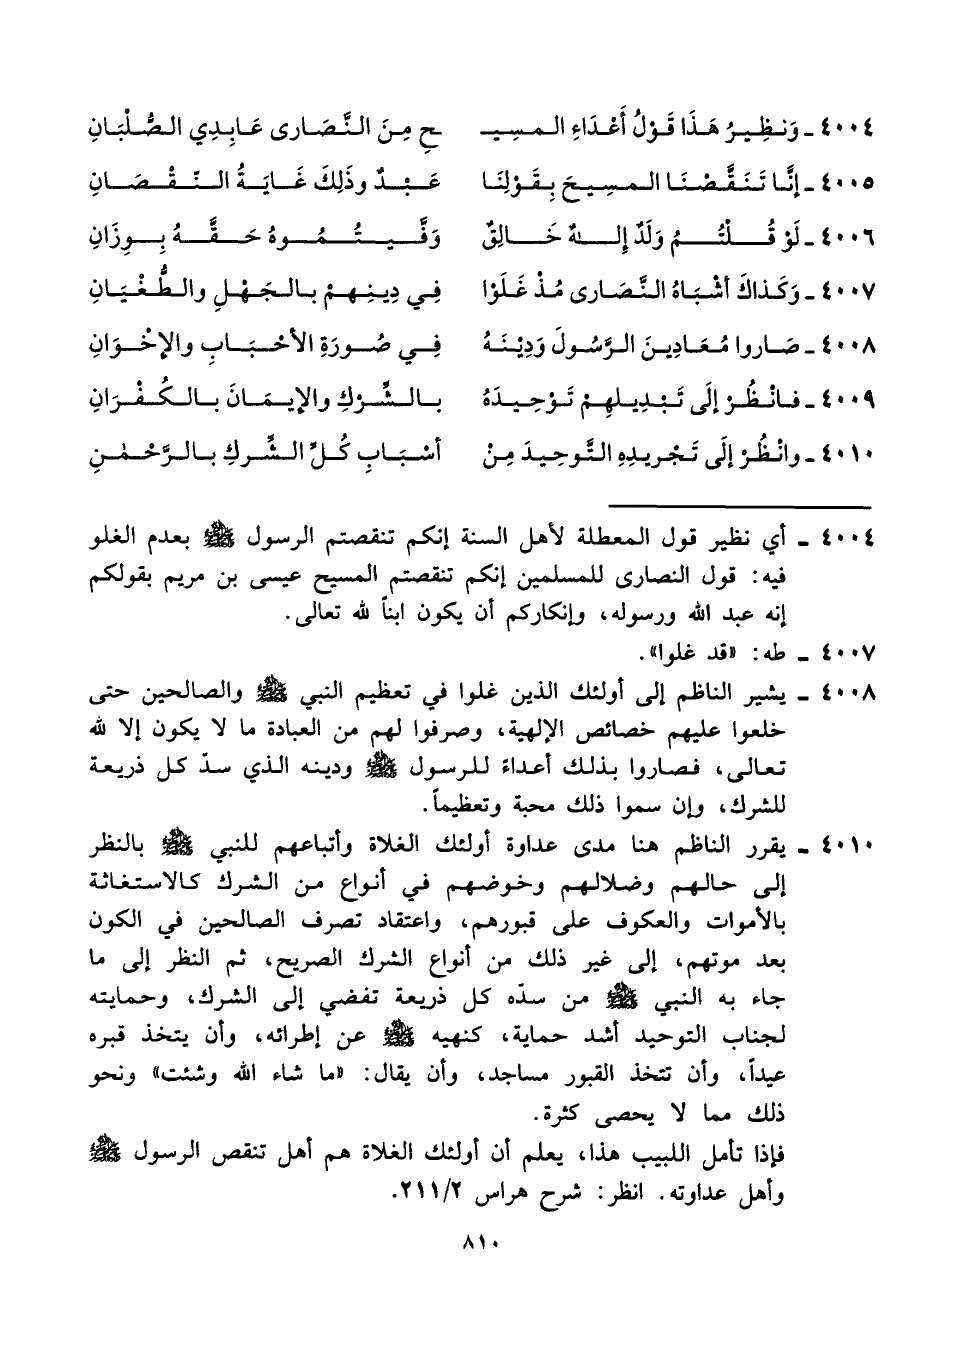 ٤٠٠٤ - وَنَظِيرُ هَذَا قَوْلُ أَعْدَاءِ المسِيـ ـحِ مِنَ النَّصَارى عَابِدِي الصُّلْبَانِ
٤٠٠٥ - إنَّا تَنَقَّصْنَا المسِيحَ بِقَوْلِنَا عَبْدٌ وذَلِكَ غَايَةُ النّقْصَانِ
٤٠٠٦ - لَوْ قُلْتُمُ وَلَدٌ إلهٌ خَالِقٌ وَفَّيتُمُوهُ حَقَّهُ بِوِزَانِ
٤٠٠٧ - وَكَذاكَ أشْبَاهُ النَّصَارى مُذْ غَلَوْا فِي دِينِهِمْ بالجَهْلِ والطُّغْيَانِ
٤٠٠٨ - صَاروا مُعَادِينَ الرَّسُولَ وَدِيْنَهُ فِي صُورَةِ الأحْبَابِ والإخْوَانِ
٤٠٠٩ - فانْظُرْ إلَى تَبْدِيلِهِمْ تَوْحِيدَهُ بالشِّرْكِ والإيمَانَ بالكُفْرَانِ
٤٠١٠ - وانْظُرْ إلَى تَجْرِيدِهِ التَّوحِيدَ مِنْ أسْبَابِ كُلِّ الشِّركِ بالرَّحْمنِ
٤٠٠٤ - أي نظير قول المعطلة لأهل السنة إنكم تنقصتم الرسول ﷺ بعدم الغلو
فيه: قول النصارى للمسلمين إنكم تنقصتم المسيح عيسى بن مريم بقولكم
إنه عبد الله ورسوله، وإنكاركم أن يكون ابناً لله تعالى.
٤٠٠٧ - طه: «قد غلوا».
٤٠٠٨ - يشير الناظم إلى أولئك الذين غلوا في تعظيم النبي ﷺ والصالحين حتى
خلعوا عليهم خصائص الإلهية، وصرفوا لهم من العبادة ما لا يكون إلا لله
تعالى، فصاروا بذلك أعداءً للرسول ﷺ ودينه الذي سدّ كل ذريعة
للشرك، وإن سموا ذلك محبة وتعظيماً.
٤٠١٠ - يقرر الناظم هنا مدى عداوة أولئك الغلاة وأتباعهم للنبي ﷺ بالنظر
إلى حالهم وضلالهم وخوضهم في أنواع من الشرك كالاستغاثة
بالأموات والعكوف على قبورهم، واعتقاد تصرف الصالحين في الكون
بعد موتهم، إلى غير ذلك من أنواع الشرك الصريح، ثم النظر إلى ما
جاء به النبي ﷺ من سدّه كل ذريعة تفضي إلى الشرك، وحمايته
لجناب التوحيد أشد حماية، كنهيه ﷺ عن إطرائه، وأن يتخذ قبره
عيداً، وأن تتخذ القبور مساجد، وأن يقال: «ما شاء الله وشئت» ونحو
ذلك مما لا يحصى كثرة.
فإذا تأمل اللبيب هذا، يعلم أن أولئك الغلاة هم أهل تنقص الرسول ﷺ
وأهل عداوته. انظر: شرح هراس ٢/٢١١.
٨١٠